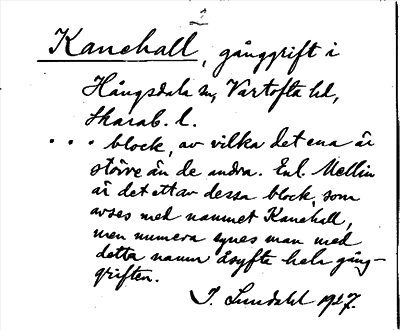 1
Kanehall, gånggrift i
Hångsdala sn, Vartofta hd,
Skarab. l.
... block, av vilka det ena är
större än de andra. Enl. Mellin
är det ett av dessa block, som
avses med namnet Kanehall,
men numera synes man med
detta namn åsyfta hela gång-
griften.
I. Lundahl 1927.